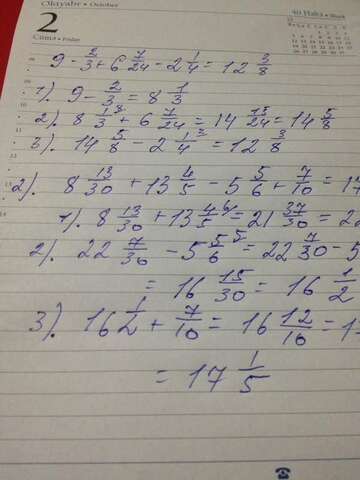 Oktyabr • October
40 Həftə • Week
2
Cümə • Friday
9 - 2/3 + 6 7/24 - 2 1/4 = 12 3/8
1). 9 - 2/3 = 8 1/3
2). 8 1/3 8 + 6 7/24 = 14 15/24 = 14 5/8
3). 14 5/8 - 2 1/4 = 12 3/8
2). 8 13/30 + 13 4/5 - 5 5/6 + 7/10 = 17
1). 8 13/30 + 13 4/5 = 21 37/30 = 22
2). 22 7/30 - 5 5/6 5 = 22 7/30 - 5
= 16 15/30 = 16 1/2
3). 16 1/2 + 7/10 = 16 12/10 = 1
= 17 1/5